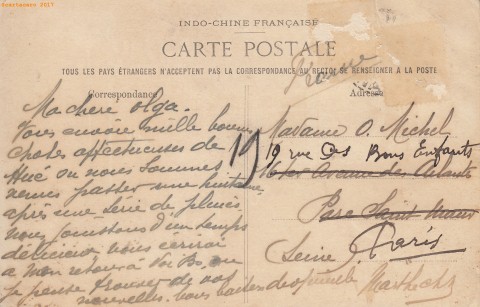 delcampe 2017
INDO-CHINE FRANÇAISE
CARTE POSTALE
TOUS LES PAYS ÉTRANGERS N'ACCEPTENT PAS LA CORRESPONDANCE AU RECTO SE RENSEIGNER A LA POSTE
France
Correspondance
Adresse
Ma chere Olga.
Vous envoie mille bonnes
choses affectueuses de
Hué ou nous sommes
venus passer une huitaine
après une série de pluies
nous jouissons d'un temps
délicieux vous écrirai
a mon retour à
je pense trouver de vos
nouvelles. Vous
Madame O. Michel
19 rue des Bons Enfants
19
Avenue des
Parc Saint Maur
Seine
Paris
Marthe